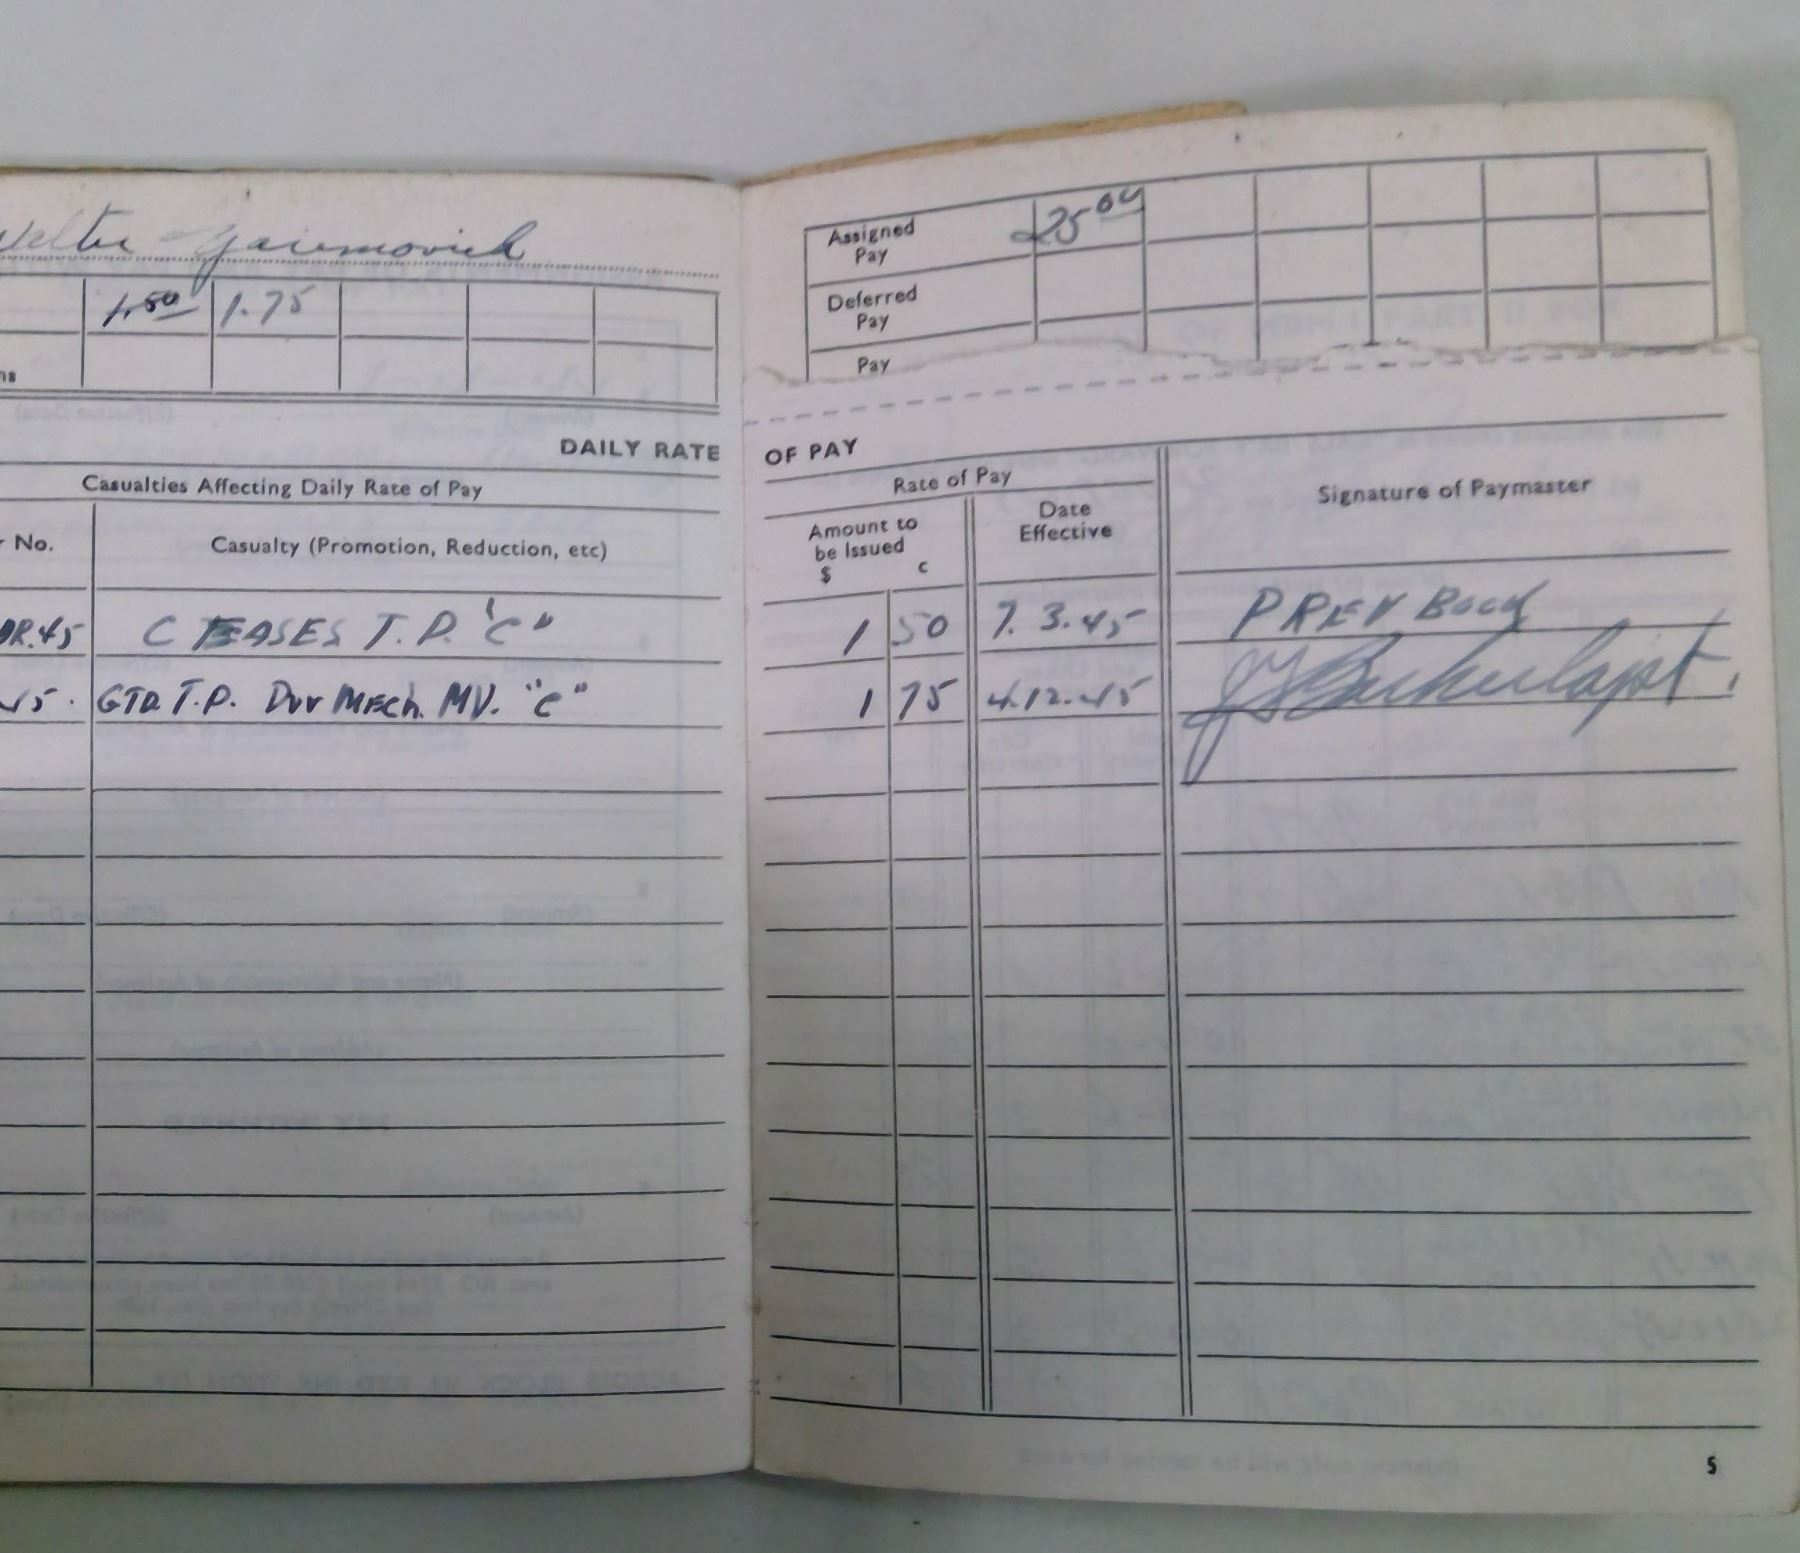 Walter Yaremovich
1.50 1.75
ns
Assigned Pay 25 00
Deferred Pay
Pay
DAILY RATE OF PAY
Casualties Affecting Daily Rate of Pay
Rate of Pay
Signature of Paymaster
r No.
Casualty (Promotion, Reduction, etc)
Amount to be Issued
$ c
Date Effective
OR.45 CEASES T.P. "C" 1 50 7.3.45 PREV BOOK
45. GTD T.P. Dvr Mech. MV. "C" 1 75 4.12.45
5